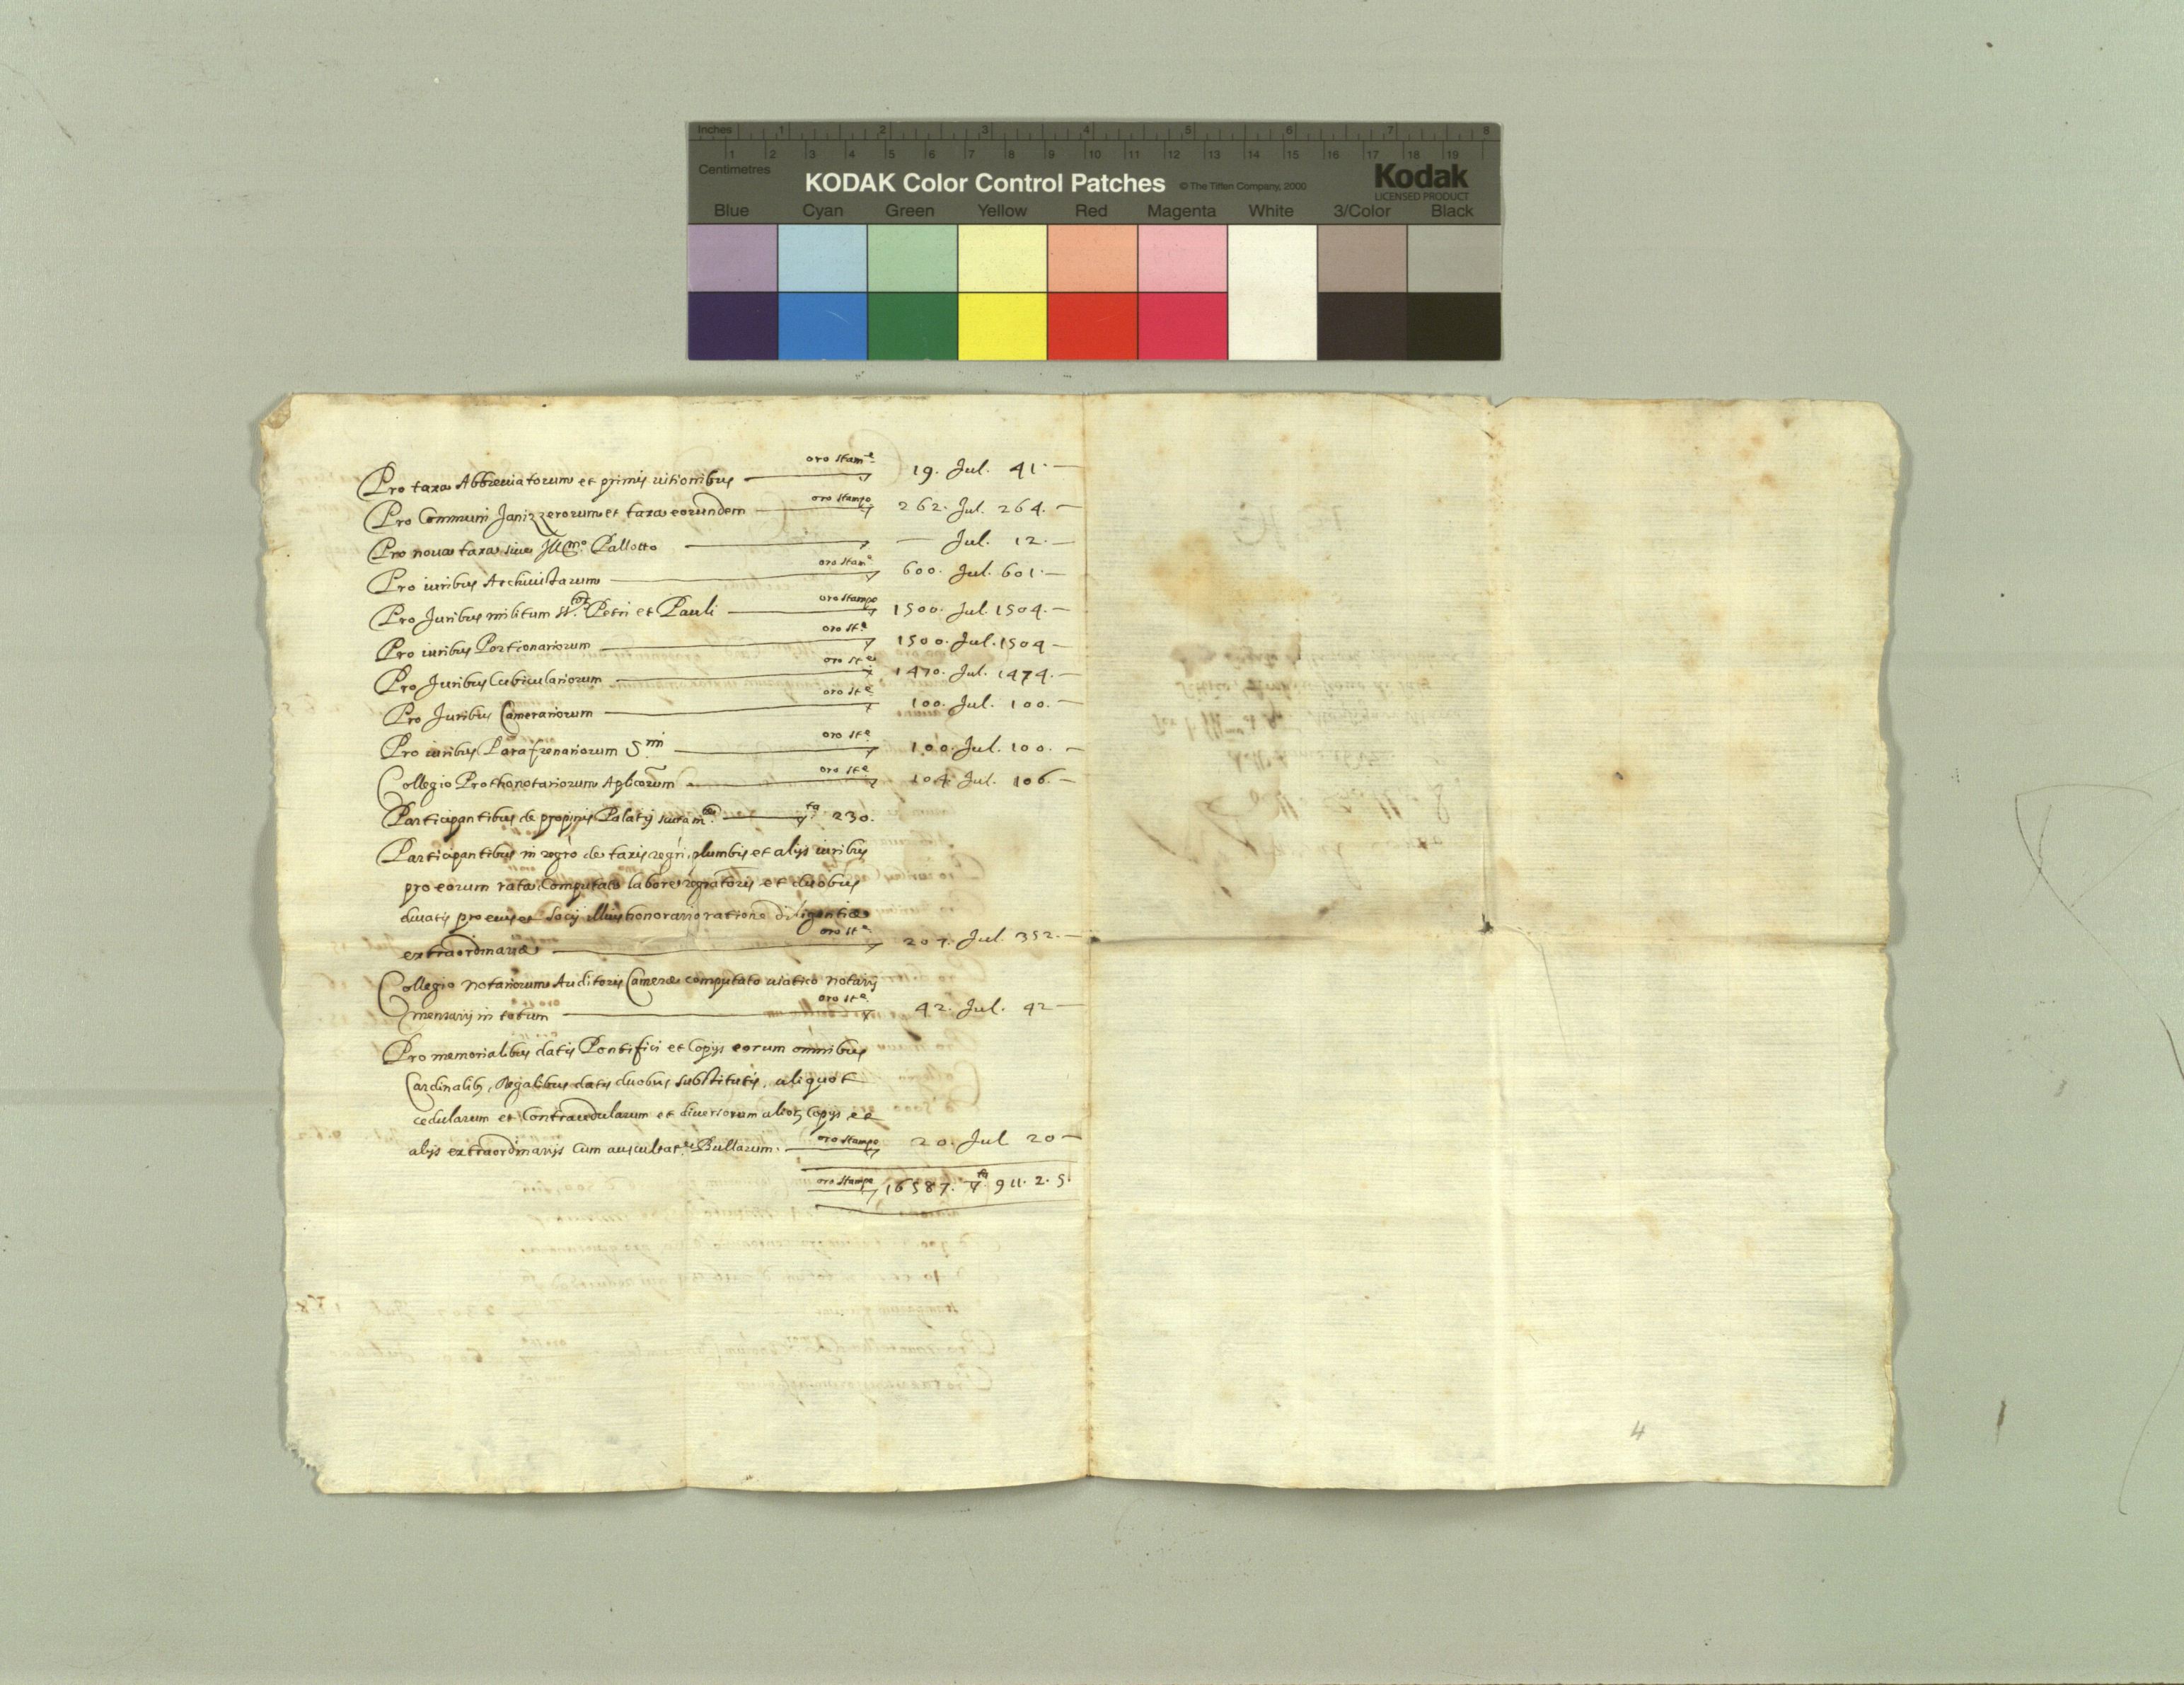 Inches 1 2 3 4 5 6 7 8
Centimetres 1 2 3 4 5 6 7 8 9 10 11 12 13 14 15 16 17 18 19
KODAK Color Control Patches © The Tiffen Company, 2000 Kodak
LICENSED PRODUCT
Blue Cyan Green Yellow Red Magenta White 3/Color Black
Pro taxa Abbreviatorum et primis uisionibus oro stam.e 19. Jul. 41.
Pro Communi Janizzerorum et taxa eorundem oro stampe 262. Jul. 264.
Pro noua taxa siue Ill.mo Pallotto — Jul. 12.
Pro iuribus Archiuistarum oro stam.e 600. Jul. 601.
Pro Juribus militum St.or Petri et Pauli oro stampe 1500. Jul. 1504.
Pro iuribus Portionariorum oro st.e 1500. Jul. 1504
Pro Juribus Cubiculariorum oro st.e 1470. Jul. 1474.
Pro Juribus Camerariorum oro st.e 100. Jul. 100.
Pro iuribus Parafrenariorum S.mi oro st.e 100. Jul. 100.
Collegio Prothonotariorum Aplicorum oro st.e 104. Jul. 106.
Participantibus de propinis Palatij 230.
Participantibus in regro de taxis regri, plumbis et alijs iuribus
pro eorum rata Computato labore regratoris et duobus
ducatis pro eius et socij illius honorario ratione diligentiæ
extraordinariæ oro st.e 207. Jul. 352.
Collegio Notariorum Auditoris Cameræ computato uiatico notarij
mensarij in totum oro st.e 42. Jul. 42
Pro memorialibus datis Pontifici et Copijs eorum omnibus
Cardinalib, Regalibus datis duobus substitutis, aliquot
cedularum et Contracedularum et diuersorum alior Copijs et
alijs extraordinarijs Cum auscultat.e Bullarum. oro stampe 20. Jul 20
oro stampe 16587. 911. 2. 5.
4